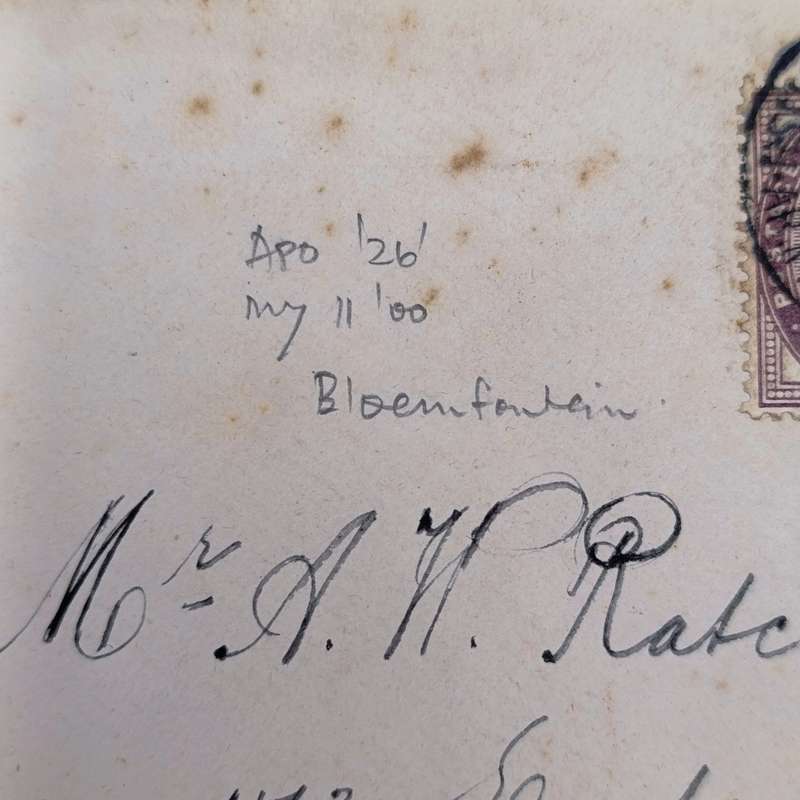 APO '26'
my 11 '00
Bloemfontein.
Mr. A. W. Ratc